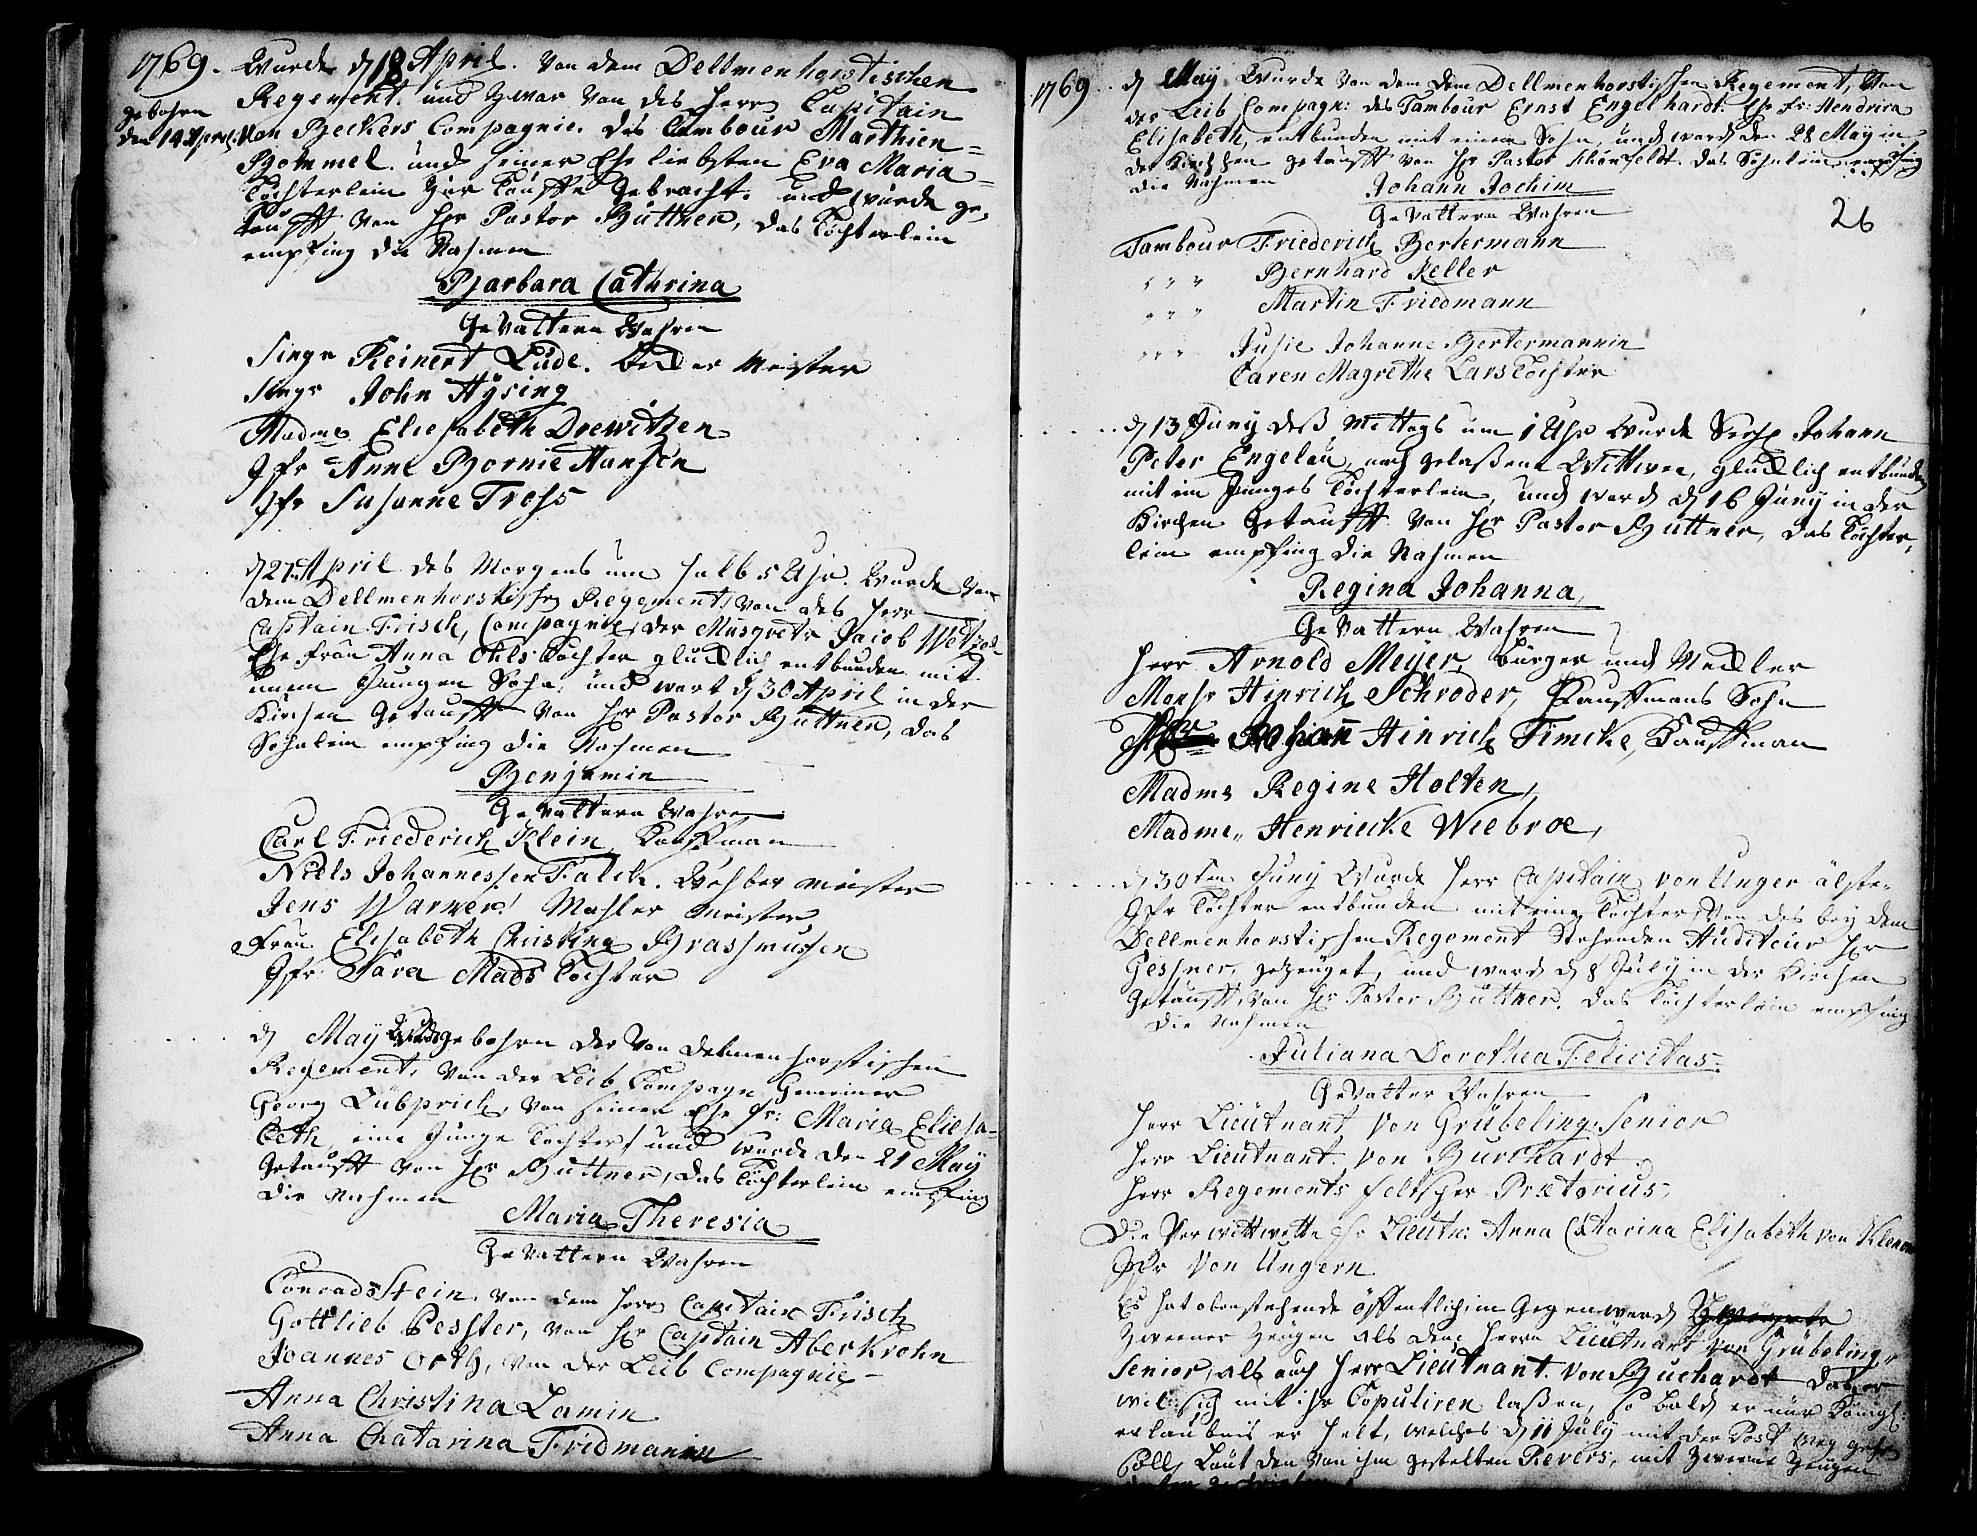 1769. Wurde d 18 April. Von dem Dellmenhorstischen
gebohren Regement. und Zwar von des Herrn Capitain
den 14 April. Von Beckers Compagnie. des Tambour Marthien
Bommel. und seiner Ehe liebsten Eva Maria
Töchterlein Zur Tauffe Gebracht. und wurde ge-
taufft Von Hr Pastor Büttner, das Töchterlein
empfing die Nahmen
Barbara Cathrina
Gevattern Wahren
Sinyr Reinert Lüde. Becker Meister
Sinyr John Hÿsing
Madme Eliesabeth Drewitzen
Jfr Anne Bornie Hansen
Jfr Susanne Tross
d 27. April des Morgens um halb 5 Uhr. Wurde Von
dem Dellmenhorstischen Regement, von des Herr
Captain Frisch, Compagnie, der Musquetr Jacob Wetzel
Ehe frau Anna Ohls Tochter glücklich entbunden mit
einem Jungen Sohn, und wart d 30 April in der
Kirchen Getaufft von Hr Pastor Büttner, das
Söhnlein empfing die Nahmen
Benjamin
Gevattern Wahren
Carl Friederich Klein, Kauffman
Niels Johannessen Falck. Wehber meister
Jens Warner! Mahler Meister
Frau Elisabeth Christina Brassmussen
Jfr: Sara Mads Tochter
d May Wurde gebohren der Von Delmenhorstischen
Regement, Von der Leib Compagn Gemeiner
Georg Lübprich, von seiner Ehe fr: Maria Eliesa-
beth, eine Junge Tochter, und wurde den 21 May
Getaufft von Hr Büttner, das Töchterlein empfing
die Nahmen
Maria Theresia
Gevattern Wahren
Conrad Stein, von dem Herrn Capitain Frisch
Gottlieb Pesster, von Hr Captain Aberkrohn
Joannes Orth, von der Leib Compagnie
Anna Christina Lamin
Anna Chatarina Fridmanin
1769 d May Wurde von dem Dellmenhorstischen Regement, Von
der Leib Compagn: des Tambour Ernst Engelhardt Ehe fr: Hendrica
Elisabeth, entbunden mit einem Sohn, und ward den 28 May in
der Kirchen getaufft von Hr Pastor Schönfeldt. das Söhnlein empfing
die Nahmen Johann Jochim
Gevattern Wahren
26
Tambour Friederich Bertermann
" " " Bernhard Keller
" " " Martin Friedmann
" " " Jusie Johanne Bertermannin
Caren Magrethe Lars Tochter
d 13 Juny deß Mittags um 1 Uhr Wurde Johann
Peter Engelau nachgelaßene Wittwee, glücklich entbunden
mit ein Junges Töchterlein, und ward d 16 Juny in der
Kirchen Getaufft Von Hr Pastor Büttner, das Töchter-
lein empfing die Nahmen
Regina Johanna,
Gevattern Wahren
Herr Arnold Meyer, bürger und Meckler
Monsr Hinrich Schröder, Kauffmans Sohn
Johan Hinrich Timcke, Kauffman
Madme Regine Holten,
Madme,, Henriecke Wiebroe,
d 30 ten Juny Wurde Herr Capitain von Unger älste-
Jfr Tochter entbunden mit eine Tochter, von des bey dem
Dellmenhorstischen Regement Stehenden Auditeur Hr
Gessner, gezeuget, und ward d 8 July in der Kirchen
Getaufft, von Hr Pastor Büttner. das Töchterlein empfing
die Nahmen
Juliana Dorothea Felicitas.
Gevatter Wahren
Herr Lieutnant von Grübeling Senior
Herr Lieutnant. von Burchardt.
Herr Regements feltscher Prætorius,
Die Verwittwette fr Lieutn: Anna Catarina Elisabeth von
Jfr von Ungern
Es hat obenstehende öffentlich, in Gegenward
Zweener Zeugen als dem Herrn Lieutnant von Grübeling,
Senior, als auch Herr Lieutnant. von Buchardt daß er
wil sich mit ihr Copuliren laßen, so bald er nur Königl:
erlaubnis er helt, welches d 11 July mit der Post weg gehen
soll, Laut den von ihm gestelten Revers, mit Zweene Zeugen